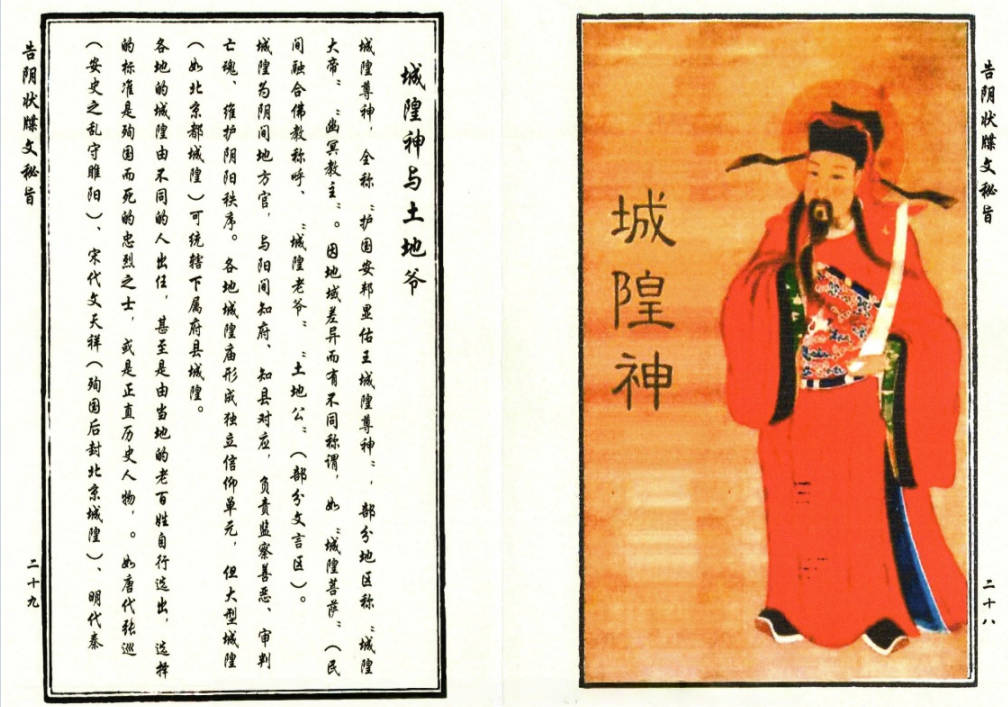 告阴状牒文秘旨
二十八
城隍神
城隍神与土地爷
城隍尊神，全称“护国安邦显佑王城隍尊神”，部分地区称“城隍
大帝”、“幽冥教主”。因地域差异而有不同称谓，如“城隍菩萨”（民
间融合佛教称呼、“城隍老爷”、“土地公”（部分文言区）。
城隍为阴间地方官，与阳间知府、知县对应，负责监察善恶、审判
亡魂、维护阴阳秩序。各地城隍庙形成独立信仰单元，但大型城隍
（如北京都城隍）可统辖下属府县城隍。
各地的城隍由不同的人出任，甚至是由当地的老百姓自行选出，选择
的标准是殉国而死的忠烈之士，或是正直历史人物，。如唐代张巡
（安史之乱守睢阳）、宋代文天祥（殉国后封北京城隍）、明代秦
告阴状牒文秘旨
二十九